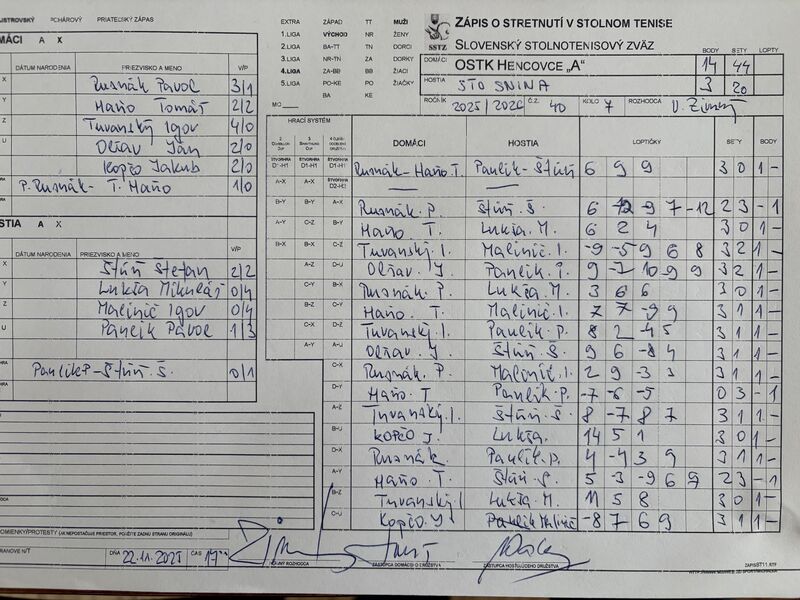 MAJSTROVSKÝ POHÁROVÝ PRIATEĽSKÝ ZÁPAS
DOMÁCI A X
DÁTUM NARODENIA PRIEZVISKO A MENO V/P
X Rusnák Pavol 3/1
Y Maňo Tomáš 2/2
Z Turanský Igor 4/0
U Oľšav Ján 2/0
Kopčo Jakub 2/0
P. Rusnák - T. Maňo 1/0
HOSTIA A X
DÁTUM NARODENIA PRIEZVISKO A MENO V/P
X Štún Štefan 2/2
Y Lukša Mikuláš 0/4
Z Malinič Igor 0/4
U Pavlik Pavol 1/3
Pavlik P - Štún.Š. 0/1
PRIPOMIENKY/PROTESTY (AK NEPOSTAČUJE PRIESTOR, POUŽITE ZADNÚ STRANU ORIGINÁLU)
DŇA 22.11.2025 ČAS 17
EXTRA ZÁPAD TT MUŽI
1.LIGA VÝCHOD NR ŽENY
2.LIGA BA-TT TN DORCI
3.LIGA NR-TN ZA DORKY
4.LIGA ZA-BB BB ŽIACI
5.LIGA PO-KE PO ŽIAČKY
BA KE
MO
SSTZ
ZÁPIS O STRETNUTÍ V STOLNOM TENISE
SLOVENSKÝ STOLNOTENISOVÝ ZVÄZ
BODY SETY LOPTY
DOMÁCI OSTK HENCOVCE „A" 14 44
HOSTIA STO SNINA 3 20
ROČNÍK 2025/2026 Č.Z. 40 KOLO 7 ROZHODCA
HRACÍ SYSTÉM DOMÁCI HOSTIA LOPTIČKY SETY BODY
Rusnák - Maňo T. Pavlik - Štún 6 9 9 3 0 1 -
B-Y B-Y A-X Rusnák. P. Štún. Š. 6 -12 -9 7 -12 2 3 - 1
A-Y C-Z B-Y Maňo. T Lukša. M. 6 2 4 3 0 1 -
B-X B-X C-Z Turanský. I. Malinič. I. -9 -5 9 6 8 3 2 1 -
A-Z D-U Oľšav. J. Pavlik. P. 9 -7 10 -9 9 3 2 1 -
C-Y B-X Rusnák. P. Lukša. M. 3 6 6 3 0 1 -
B-Z C-Y Maňo. T. Malinič. I 7 7 -9 9 3 1 1 -
C-X D-Z Turanský. I. Pavlik. P. 8 2 -4 5 3 1 1 -
A-Y A-U Oľšav. J. Štún. Š. 9 6 -8 4 3 1 1 -
C-X Rusnák. P. Malinič. I 2 9 -3 3 3 1 1 -
D-Y Maňo. T Pavlik. P. -7 -6 -5 0 3 - 1
A-Z Turanský. I. Štún. Š. 8 -7 8 7 3 1 1 -
B-U Kopčo J. Lukša. 14 5 1 3 0 1 -
D-X Rusnák Pavlik. P. 4 -4 3 9 3 1 1 -
A-Y Maňo. T. Štún. Š 5 -3 -9 6 2 3 - 1
B-Z Turanský. I Lukša. M. 11 5 8 3 0 1 -
C-U Kopčo. J Pavlik Malinič -8 7 6 9 3 1 1 -
HLAVNÝ ROZHODCA ZÁSTUPCA DOMÁCEHO DRUŽSTVA ZÁSTUPCA HOSŤUJÚCEHO DRUŽSTVA
ZAPISST11.RTF